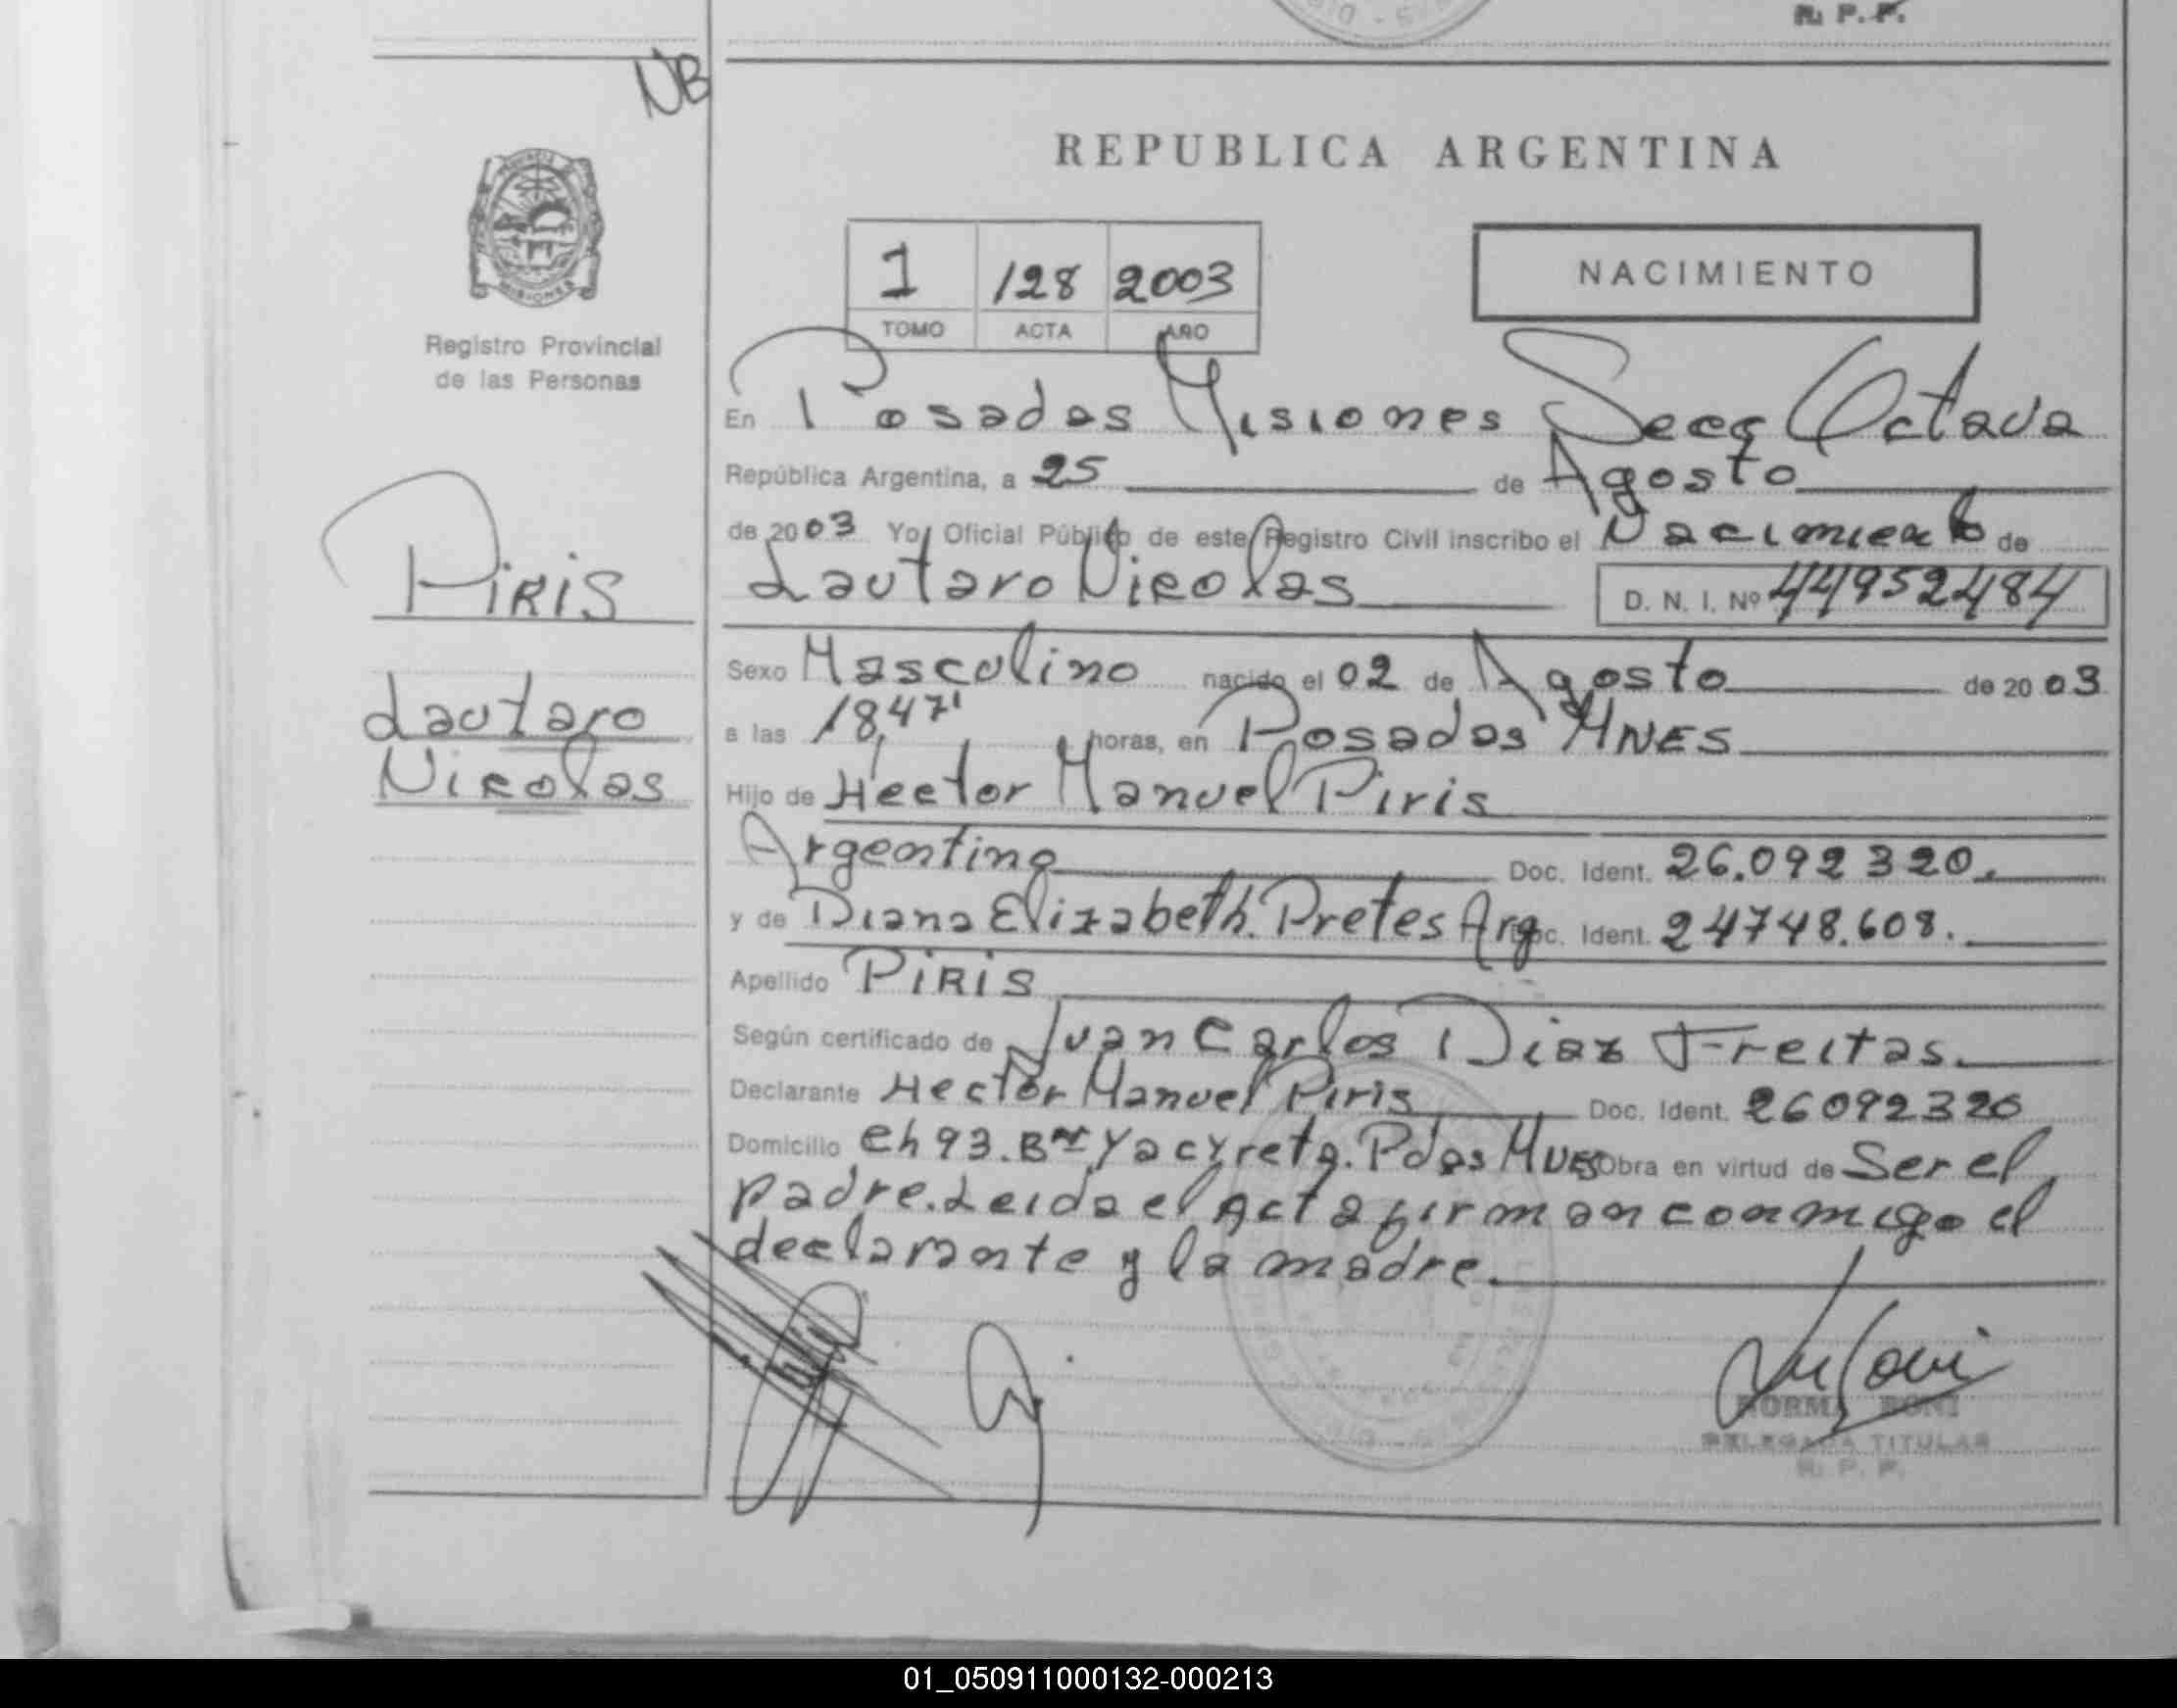 R. P. P.
NB
REPUBLICA ARGENTINA
MISIONES
Registro Provincial
de las Personas
1 128 2003
TOMO ACTA AÑO
NACIMIENTO
En Posadas Misiones Secc Octava
República Argentina, a 25 de Agosto
de 2003 Yo, Oficial Público de este Registro Civil inscribo el Nacimiento de
Lautaro Nicolas D. N. I. Nº 44952484
PIRIS
Lautaro
Nicolas
Sexo Masculino nacido el 02 de Agosto de 2003
a las 18,47' horas, en Posadas MNES
Hijo de Hector Manuel Piris
Argentino Doc. Ident. 26.092320.
y de Diana Elizabeth. Pretes Arg Doc. Ident. 24748.608.
Apellido PIRIS
Según certificado de Juan Carlos Diaz Freitas.
Declarante Hector Manuel Piris Doc. Ident. 26092320
Domicilio Ch 93. Bº Yacyreta. Pdas MNES Obra en virtud de Ser el
padre. Leida el Acta firman conmigo el
declarante y la madre.
NORMA BONI
DELEGADA TITULAR
R. P. P.
01_050911000132-000213